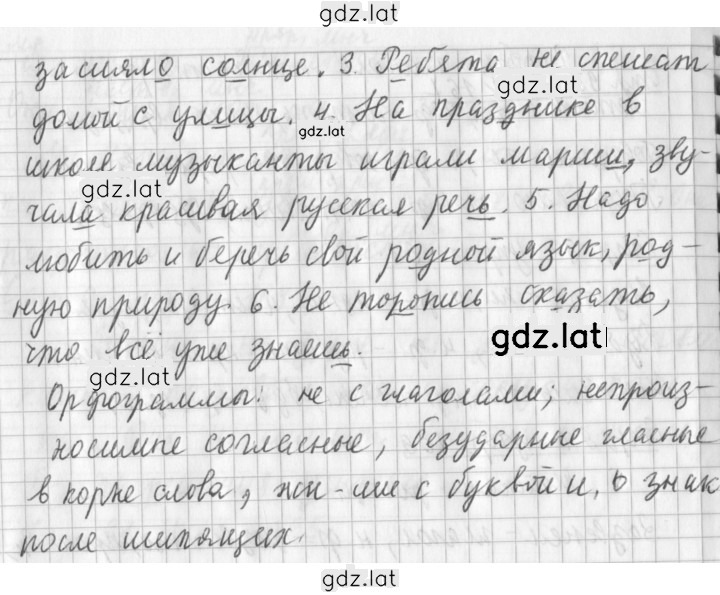 gdz.lat
засияло солнце. 3. Ребята не спешат
gdz.lat
домой с улицы. 4. На празднике в
gdz.lat
школе музыканты играли марши, зву-
gdz.lat
чала красивая русская речь. 5. Надо
любить и беречь свой родной язык, род-
ную природу. 6. Не торопись сказать,
что всё уже знаешь.
gdz.lat
gdz.lat
Орфограммы: не с глаголами; непроиз-
носимые согласные, безударные гласные
в корне слова, жи-ши с буквой и, ь знак
после шипящих.
gdz.lat